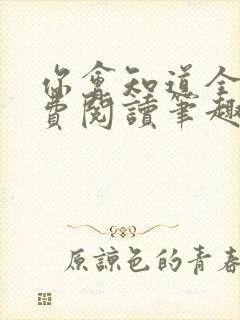 你會知道全
費閱讀筆趣
原諒色的青春